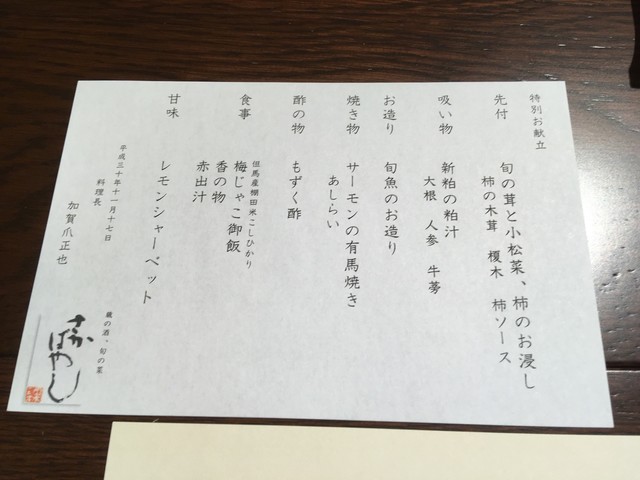 特別お献立
先付 旬の茸と小松菜、柿のお浸し
柿の木茸 榎木 柿ソース
吸い物 新粕の粕汁
大根 人参 牛蒡
お造り 旬魚のお造り
焼き物 サーモンの有馬焼き
あしらい
酢の物 もずく酢
食事 但馬産棚田米こしひかり
梅じゃこ御飯
香の物
赤出汁
甘味 レモンシャーベット
平成三十年十一月十七日
料理長
加賀爪正也
蔵の酒、旬の菜
さかばやし